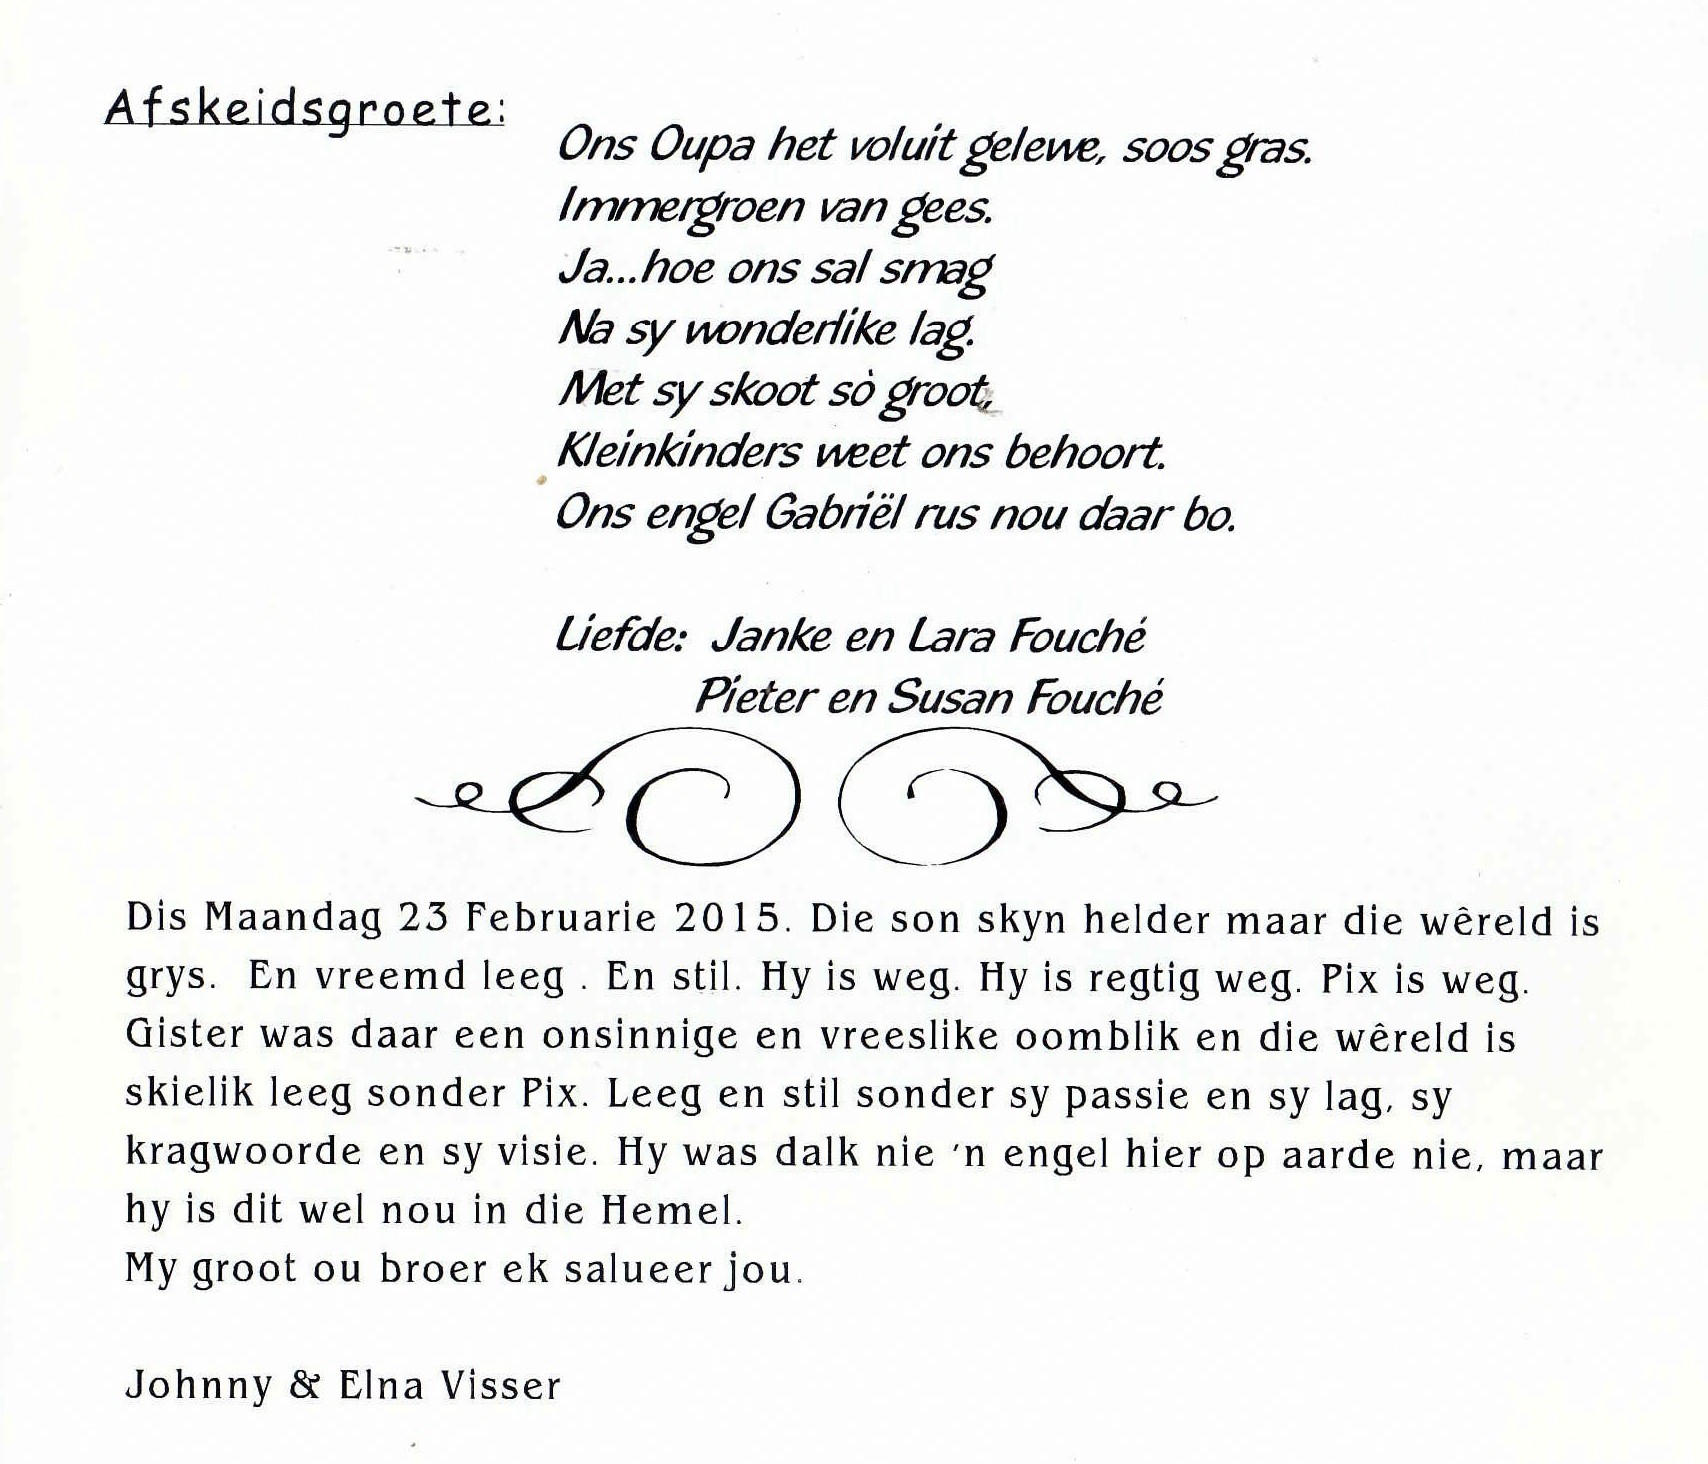 Afskeidsgroete:
Ons Oupa het voluit gelewe, soos gras.
Immergroen van gees.
Ja...hoe ons sal smag
Na sy wonderlike lag.
Met sy skoot sò groot,
Kleinkinders weet ons behoort.
Ons engel Gabriël rus nou daar bo.
Liefde: Janke en Lara Fouché
Pieter en Susan Fouché
Dis Maandag 23 Februarie 2015. Die son skyn helder maar die wêreld is
grys. En vreemd leeg . En stil. Hy is weg. Hy is regtig weg. Pix is weg.
Gister was daar een onsinnige en vreeslike oomblik en die wêreld is
skielik leeg sonder Pix. Leeg en stil sonder sy passie en sy lag, sy
kragwoorde en sy visie. Hy was dalk nie 'n engel hier op aarde nie, maar
hy is dit wel nou in die Hemel.
My groot ou broer ek salueer jou.
Johnny & Elna Visser